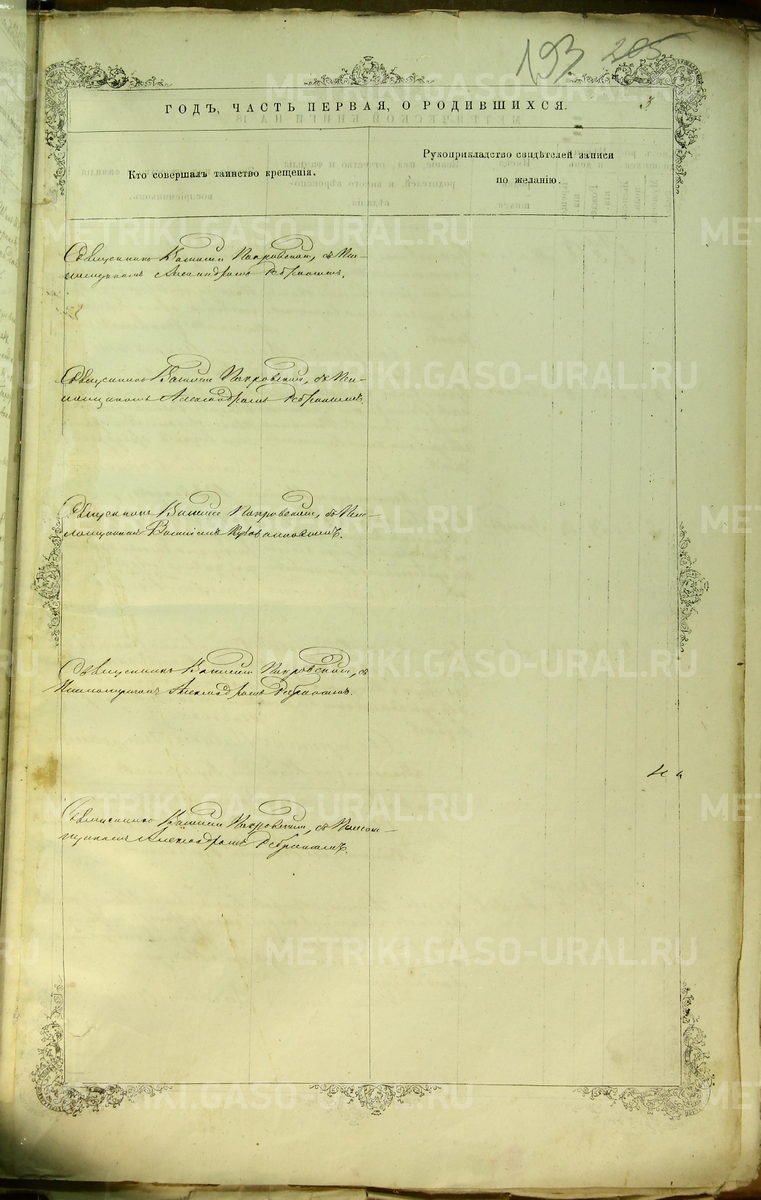 193. 205
ГОДЪ, ЧАСТЬ ПЕРВАЯ, О РОДИВШИХСЯ.
3
Кто совершалъ таинство крещенія.
Рукоприкладство свидѣтелей записи
по желанію.
Священникъ Василій Покровскій, съ Пса-
ломщикомъ Александромъ
Священникъ Василій Покровскій, съ Пса-
ломщикомъ Александромъ
Священникъ Василій Покровскій, съ Пса-
ломщикомъ
Священникъ Василій Покровскій, съ
Псаломщикомъ Александромъ
Священникъ Василій Покровскій, съ Псалом-
щикомъ Александромъ
METRIKI.GASO-URAL.RU